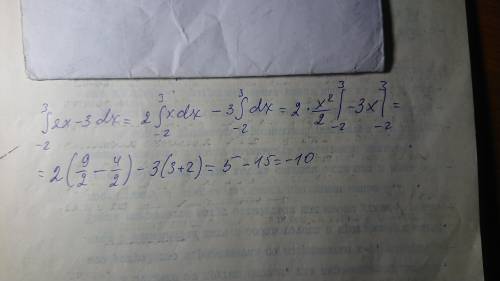 ∫₋₂³ 2x-3dx = 2 ∫₋₂³ xdx - 3 ∫₋₂³ dx = 2 · x²/2 |₋₂³ - 3x |₋₂³ =
= 2(9/2 - 4/2) - 3(3+2) = 5 - 15 = -10